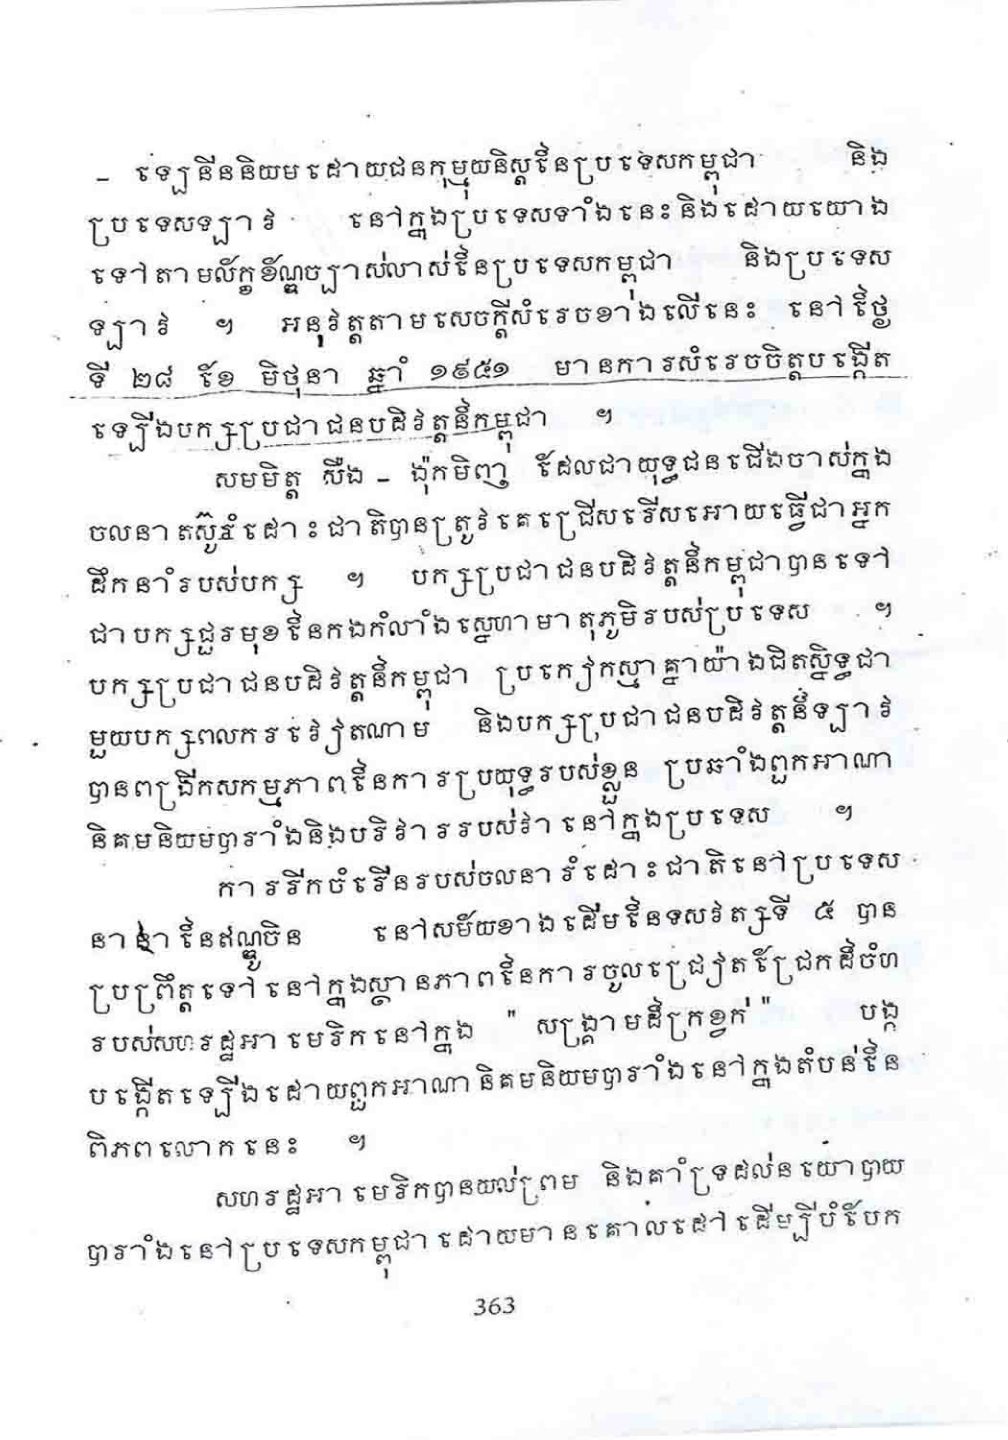 – ឡេនីននិយមដោយជនកុម្មុយនិស្តនៃប្រទេសកម្ពុជា និង
ប្រទេសឡាវ នៅក្នុងប្រទេសទាំងនេះនិងដោយយោង
ទៅតាមល័ក្ខខ័ណ្ឌច្បាស់លាស់នៃប្រទេសកម្ពុជា និងប្រទេស
ឡាវ ។ អនុវត្តតាមសេចក្តីសំរេចខាងលើនេះ នៅថ្ងៃ
ទី ២៨ ខែ មិថុនា ឆ្នាំ ១៩៥១ មានការសំរេចចិត្តបង្កើត
ឡើងបក្សប្រជាជនបដិវត្តន៍កម្ពុជា ។
សមមិត្ត សឺង – ង៉ុកមិញ ដែលជាយុទ្ធជនជើងចាស់ក្នុង
ចលនាតស៊ូរំដោះជាតិបានត្រូវគេជ្រើសរើសអោយធ្វើជាអ្នក
ដឹកនាំរបស់បក្ស ។ បក្សប្រជាជនបដិវត្តន៍កម្ពុជាបានទៅ
ជាបក្សជួរមុខនៃកងកំលាំងស្នេហាមាតុភូមិរបស់ប្រទេស ។
បក្សប្រជាជនបដិវត្តន៍កម្ពុជា ប្រកៀកស្មាគ្នាយ៉ាងជិតស្និទ្ធជា
មួយបក្សពលករវៀតណាម និងបក្សប្រជាជនបដិវត្តន៍ឡាវ
បានពង្រីកសកម្មភាពនៃការប្រយុទ្ធរបស់ខ្លួន ប្រឆាំងពួកអាណា
និគមនិយមបារាំងនិងបរិវាររបស់វា នៅក្នុងប្រទេស ។
ការរីកចំរើនរបស់ចលនារំដោះជាតិនៅប្រទេស
នានានៃឥណ្ឌូចិន នៅសម័យខាងដើមនៃទសវត្សទី ៥ បាន
ប្រព្រឹត្តទៅនៅក្នុងស្ថានភាពនៃការចូលជ្រៀតជ្រែកដ៏ចំហ
របស់សហរដ្ឋអាមេរិកនៅក្នុង " សង្គ្រាមដ៏ក្រខ្វក់ " បង្ក
បង្កើតឡើងដោយពួកអាណានិគមនិយមបារាំងនៅក្នុងតំបន់នៃ
ពិភពលោកនេះ ។
សហរដ្ឋអាមេរិកបានយល់ព្រម និងគាំទ្រដល់នយោបាយ
បារាំងនៅប្រទេសកម្ពុជាដោយមានគោលដៅដើម្បីបំបែក
363